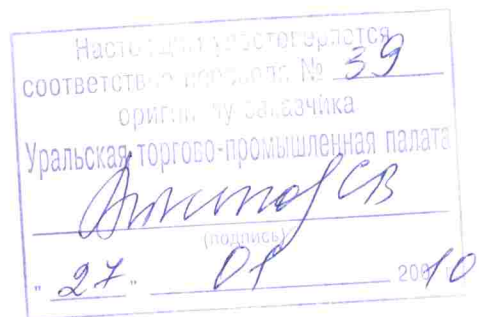 Настоящим удостоверяется
соответствие перевода № 39
оригиналу заказчика
Уральская торгово-промышленная палата
СВ
(подпись)
" 27 " 01 200 10